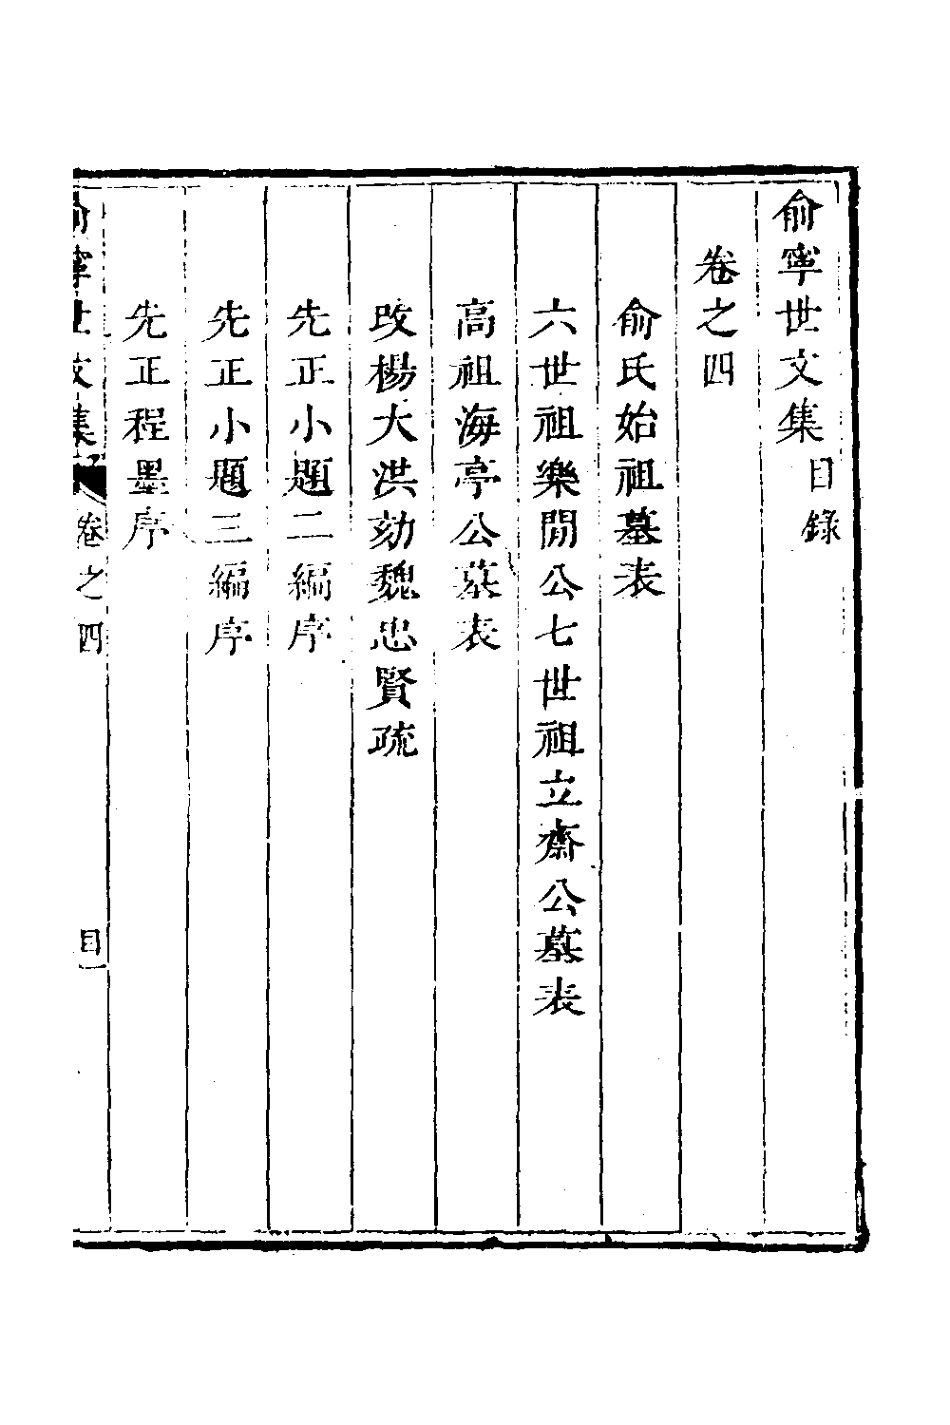 俞寧世文集目錄
卷之四
俞氏始祖墓表
六世祖樂閒公七世祖立齋公墓表
高祖海亭公墓表
改楊大洪劾魏忠賢疏
先正小題二編序
先正小題三編序
先正程墨序
俞寧世文集 卷之四 目一